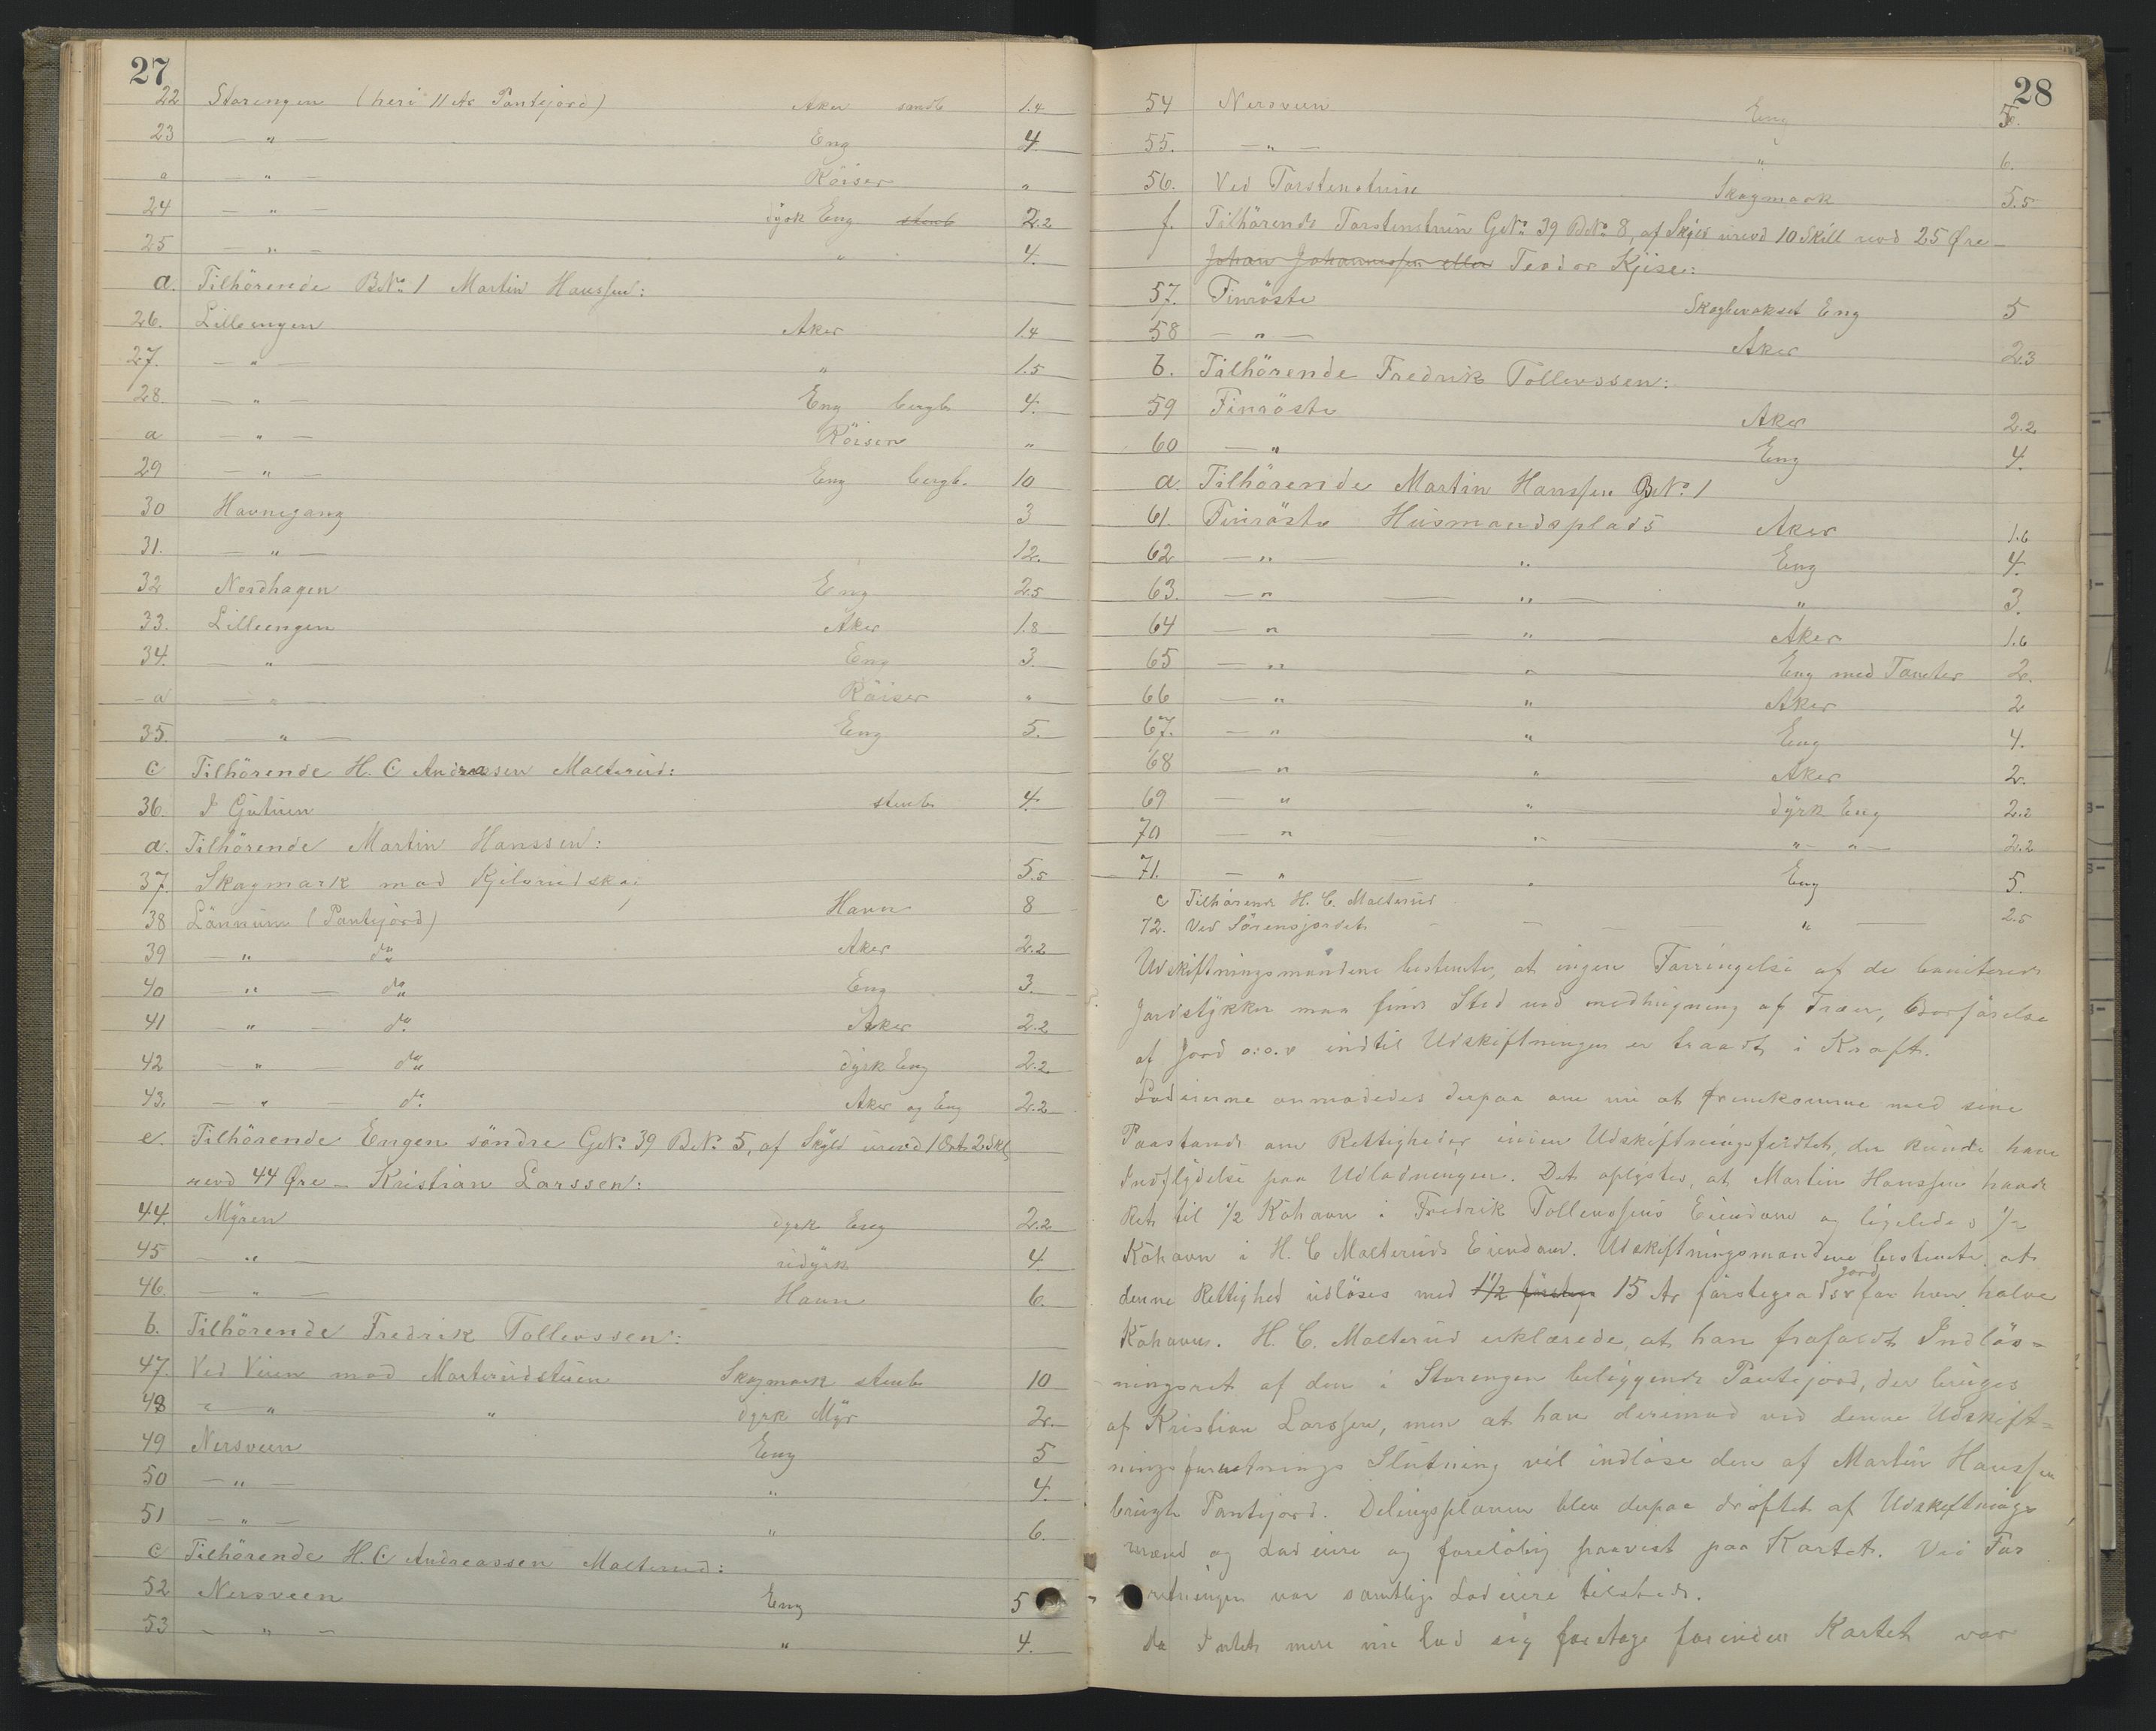 27
22 Storengen (heri 11 Ar Pantejord) Aker sandb 1.4
23 — " — Eng 4.
a — " — Röiser "
24 — " — dyrk Eng stenb 2.2
25 — " — " 4.
a. Tilhörende BrNo. 1 Martin Hanssen:
26. Lilleengen Aker 1.4
27. — " — " 1.5
28. — " — Eng bergb. 4.
a — " — Röisen "
29 — " — Eng bergb. 10
30 Havnegang 3
31. — " — 12.
32 Nordhagen Eng 2.5
33. Lilleengen Aker 1.8
34. — " — Eng 3.
a — " — Röiser "
35. — " — Eng 5.
c Tilhörende H. C Andreassen Malterud:
36. I Gutuen stenb. 4.
a. Tilhörende Martin Hanssen:
37. Skogmark mod 5.5
38 Lönnum (Pantejord) Havn 8
39 — " — do. Aker 2.2
40 — " — do. Eng 3.
41 — " — do. Aker 2.2
42 — " — do. dyrk Eng 2.2
43. — " — do. Aker og Eng 2.2
e. Tilhörende Engen söndre GNo. 39 BrNo. 5, af Skyld urevd 1 Ort 2 Skl,
revd 44 Øre — Kristian Larssen:
44. Myren dyrk Eng 2.2
45 — " — udyrk 4
46. — " — Havn 6.
b. Tilhörende Fredrik Tollevssen:
47. Ved Veien mod Marterudstuen Skogmark stenb 10
48 — " — " dyrk Myr 2.
49 Nersveen Eng 5
50 — " — " 4.
51 — " — " 6.
c Tilhörende H. C. Andreassen Malterud:
52 Nersveen Eng 5
53 — " — " 4.
28
54 Nersveen Eng 5.
55. — " — " 6.
56. Ved Torstenstuen Skogmark 5.5
f. Tilhörende Torstenstuen GNo. 39 BNo. 8, af Skyld urevd 10 Skill revd 25 Øre —
Johan Johannessen eller Teodor Kjise:
57. Finröste Skogbevokset Eng 5
58 — " — Aker 2.3
b. Tilhörende Fredrik Tollevssen:
59 Finröste Aker 2.2
60 — " Eng 4.
a. Tilhörende Martin Hanssen BrNo. 1
61. Finröste Husmandsplads Aker 1.6
62 — " — " Eng 4.
63. — " — " — " 3.
64 — " — " — Aker 1.6
65 — " " Eng med Tomter 2.
66 — " — " Aker 2
67. — " " Eng 4.
68 — " " Aker 2.
69 — " " dyrk Eng 2.2
70 — " — " — " — " — 2.2
71. — " — " Eng 5.
c Tilhörende H. C. Malterud
72. Ved Sörensjordet — — — — " — 2.5
Udskiftningsmændene bestemte, at ingen Forringelse af de boniterede
Jordstykker maa finde Sted ved nedhugning af Træer, Bortförelse
af Jord o.s.v indtil Udskiftningen er traadt i Kraft.
Lodeierne anmodedes derpaa om nu at fremkomme med sine
Paastande om Rettigheder, inden Udskiftningsfeldtet, der kunde have
Indflydelse paa Udlodningen. Det oplystes, at Martin Hanssen havde
Ret til 1/2 Kohavn i Fredrik Tollevssens Eiendom og ligeledes 1/2
Kohavn i H. C Malteruds Eiendom. Udskiftningsmændene bestemte at
denne Rettighed udlöses med 1 1/2 försteg 15 Ar förstegrads jord for hver halve
Kohavn. H. C. Malterud erklærede, at han frafaldt Indlös=
ningsret af den i Storengen beliggende Pantejord, der bruges
af Kristian Larssen, men at han derimod ved denne Udskift=
ningsforretnings Slutning vil indlöse den af Martin Hanssen
brugte Pantejord. Delingsplanen blev derpaa dröftet af Udskiftnings
mænd og Lodeiere og foreløbig paavist paa Kartet. Ved For
retningen var samtlige Lodeiere tilstede.
Da Intet mere nu lod sig foretage forinden Kartet var